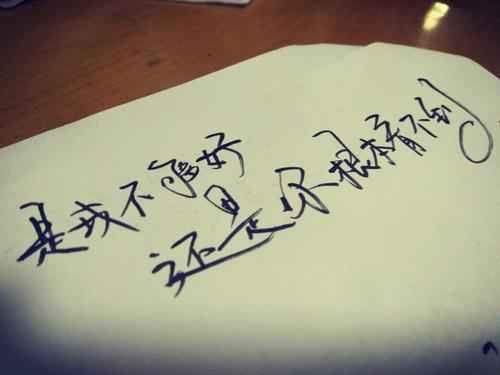 是我不够好
还是你根本看不到